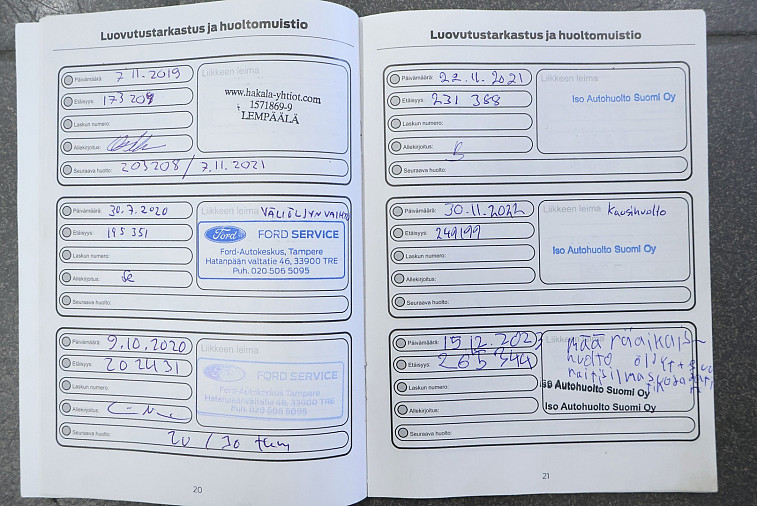 Luovutustarkastus ja huoltomuistio
Päivämäärä: 7.11.2019
Liikkeen leima
Etäisyys: 173 209
www.hakala-yhtiot.com
1571869-9
LEMPÄÄLÄ
Laskun numero:
Allekirjoitus:
Seuraava huolto: 203208 / 7.11.2021
Päivämäärä: 30.7.2020
Liikkeen leima VÄLIÖLJYN VAIHTO
Etäisyys: 195 351
Ford FORD SERVICE
Ford-Autokeskus, Tampere
Hatanpään valtatie 46, 33900 TRE
Puh. 020 506 5095
Laskun numero:
Allekirjoitus:
Seuraava huolto:
Päivämäärä: 9.10.2020
Liikkeen leima
Etäisyys: 202431
FORD SERVICE
Ford-Autokeskus Tampere
Hatanpään valtatie 46, 33900 TRE
Puh. 020 506 5095
Laskun numero:
Allekirjoitus:
Seuraava huolto:
20
Luovutustarkastus ja huoltomuistio
Päivämäärä: 22.11.2021
Liikkeen leima
Etäisyys: 231 388
Iso Autohuolto Suomi Oy
Laskun numero:
Allekirjoitus:
Seuraava huolto:
Päivämäärä: 30.11.2022
Liikkeen leima Kausihuolto
Etäisyys: 249199
Iso Autohuolto Suomi Oy
Laskun numero:
Allekirjoitus:
Seuraava huolto:
Päivämäärä: 15.12.2023
Etäisyys: 265344
Määräaikais-
huolto öljyt +
Laskun numero:
Iso Autohuolto Suomi Oy
Iso Autohuolto Suomi Oy
Allekirjoitus:
Seuraava huolto:
21